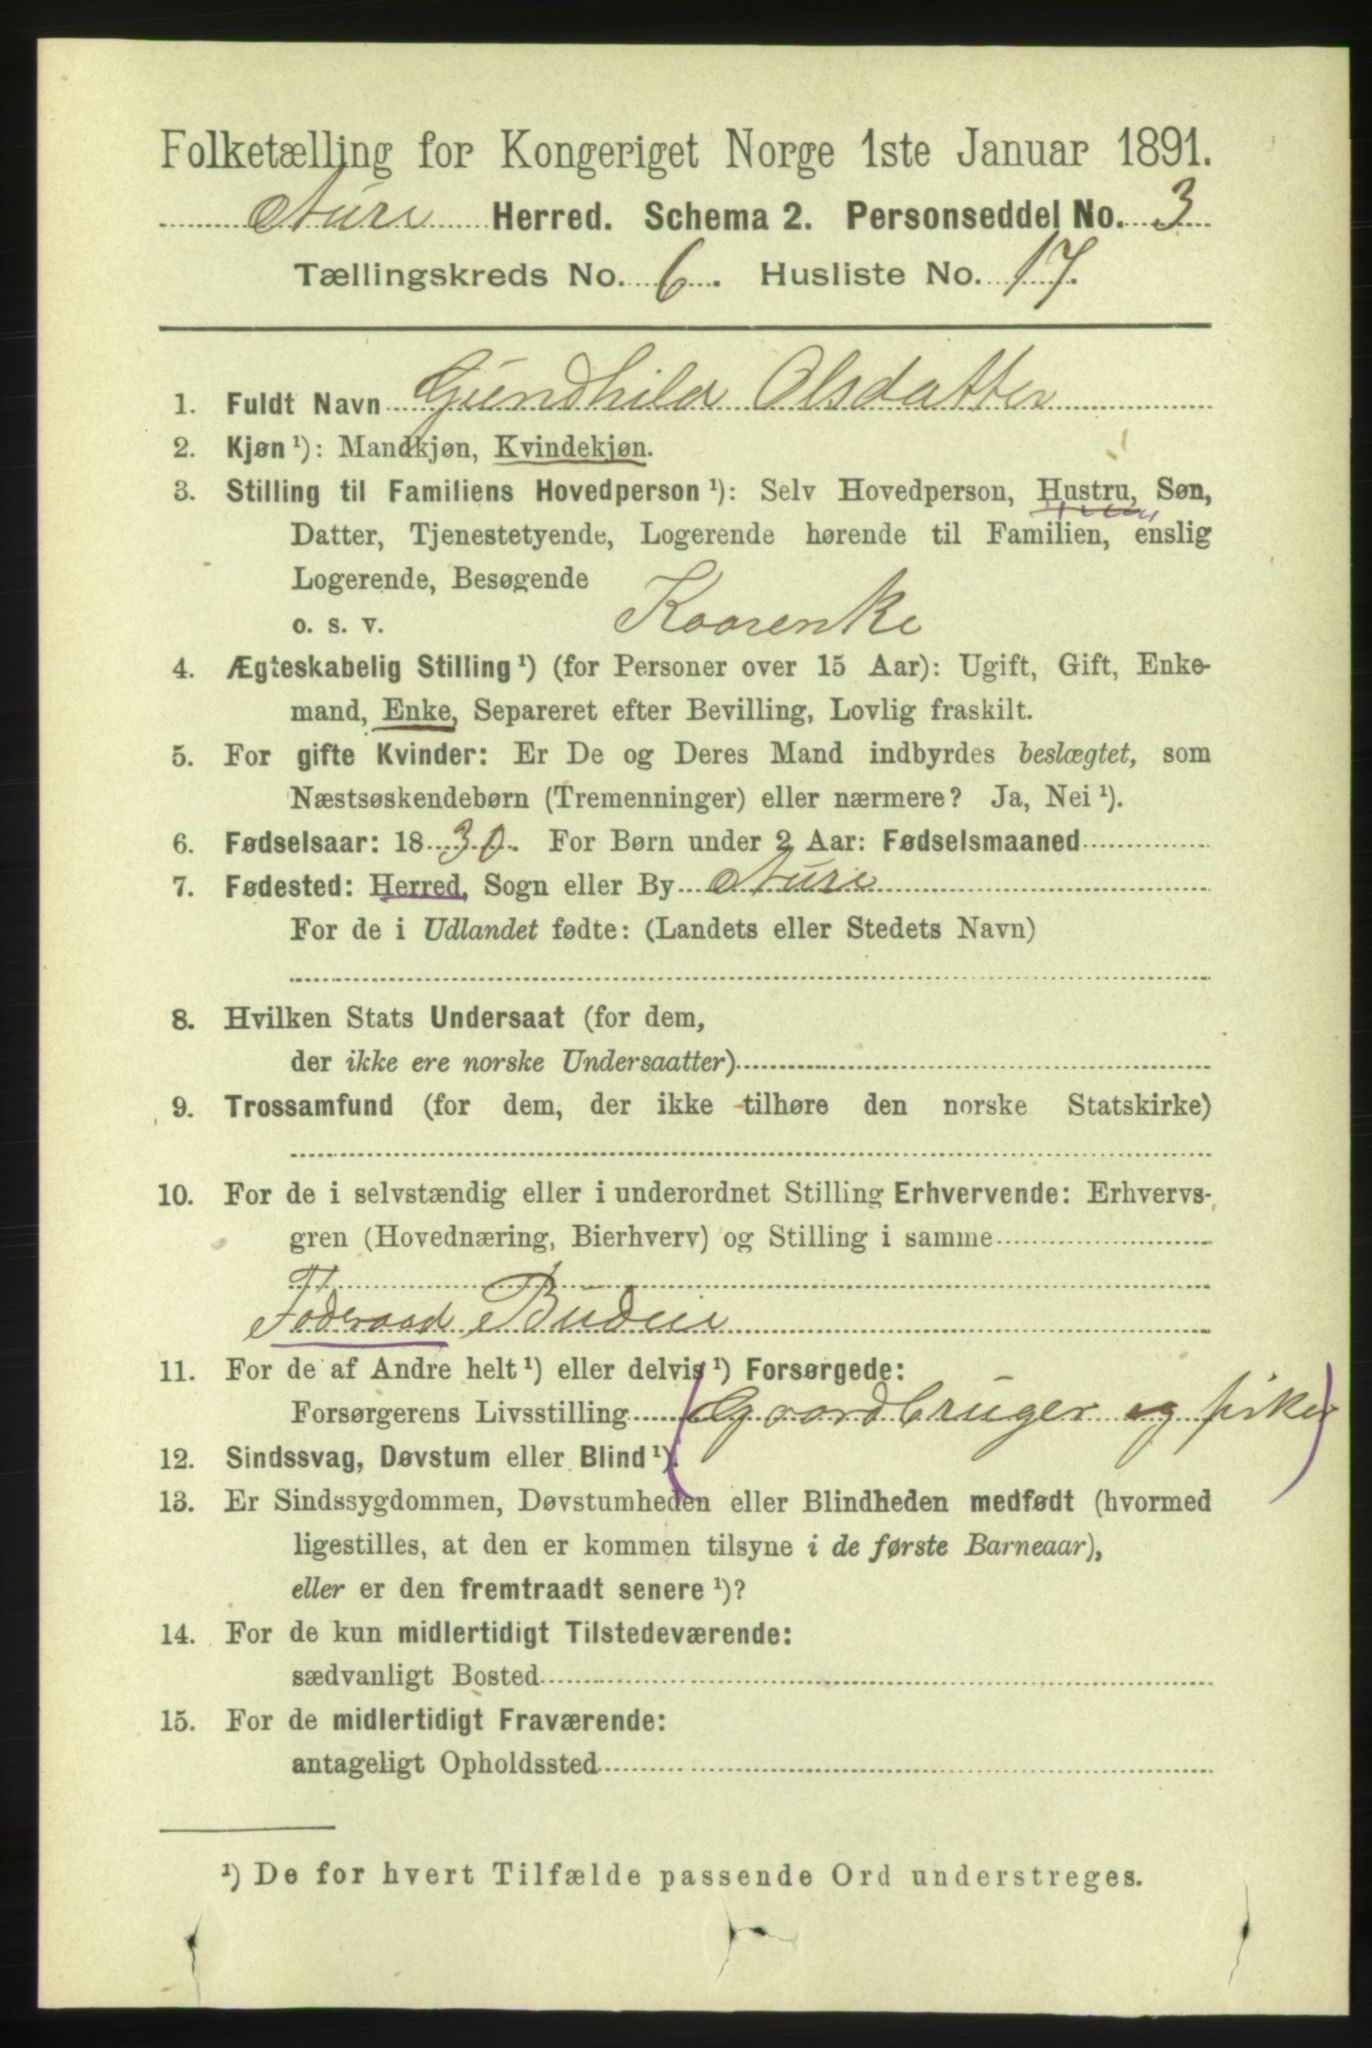 Folketælling for Kongeriget Norge 1ste Januar 1891.
Aure Herred. Schema 2. Personseddel No. 3
Tællingskreds No. 6. Husliste No. 17.
1. Fuldt Navn Gundhild Olsdatter
2. Kjøn ¹): Mandkjøn, Kvindekjøn.
3. Stilling til Familiens Hovedperson ¹): Selv Hovedperson, Hustru, Søn,
Datter, Tjenestetyende, Logerende hørende til Familien, enslig
Logerende, Besøgende
o. s. v. Kaarenke
4. Ægteskabelig Stilling ¹) (for Personer over 15 Aar): Ugift, Gift, Enke-
mand, Enke, Separeret efter Bevilling, Lovlig fraskilt.
5. For gifte Kvinder: Er De og Deres Mand indbyrdes beslægtet, som
Næstsøskendebørn (Tremenninger) eller nærmere? Ja, Nei ¹).
6. Fødselsaar: 1830. For Børn under 2 Aar: Fødselsmaaned
7. Fødested: Herred, Sogn eller By Aure
For de i Udlandet fødte: (Landets eller Stedets Navn)
8. Hvilken Stats Undersaat (for dem,
der ikke ere norske Undersaatter)
9. Trossamfund (for dem, der ikke tilhøre den norske Statskirke)
10. For de i selvstændig eller i underordnet Stilling Erhvervende: Erhvervs-
gren (Hovednæring, Bierhverv) og Stilling i samme
Føderaad Budeie
11. For de af Andre helt ¹) eller delvis ¹) Forsørgede:
Forsørgerens Livsstilling (Gaardbruger og fisker)
12. Sindssvag, Døvstum eller Blind ¹).
13. Er Sindssygdommen, Døvstumheden eller Blindheden medfødt (hvormed
ligestilles, at den er kommen tilsyne i de første Barneaar),
eller er den fremtraadt senere ¹)?
14. For de kun midlertidigt Tilstedeværende:
sædvanligt Bosted
15. For de midlertidigt Fraværende:
antageligt Opholdssted
¹) De for hvert Tilfælde passende Ord understreges.